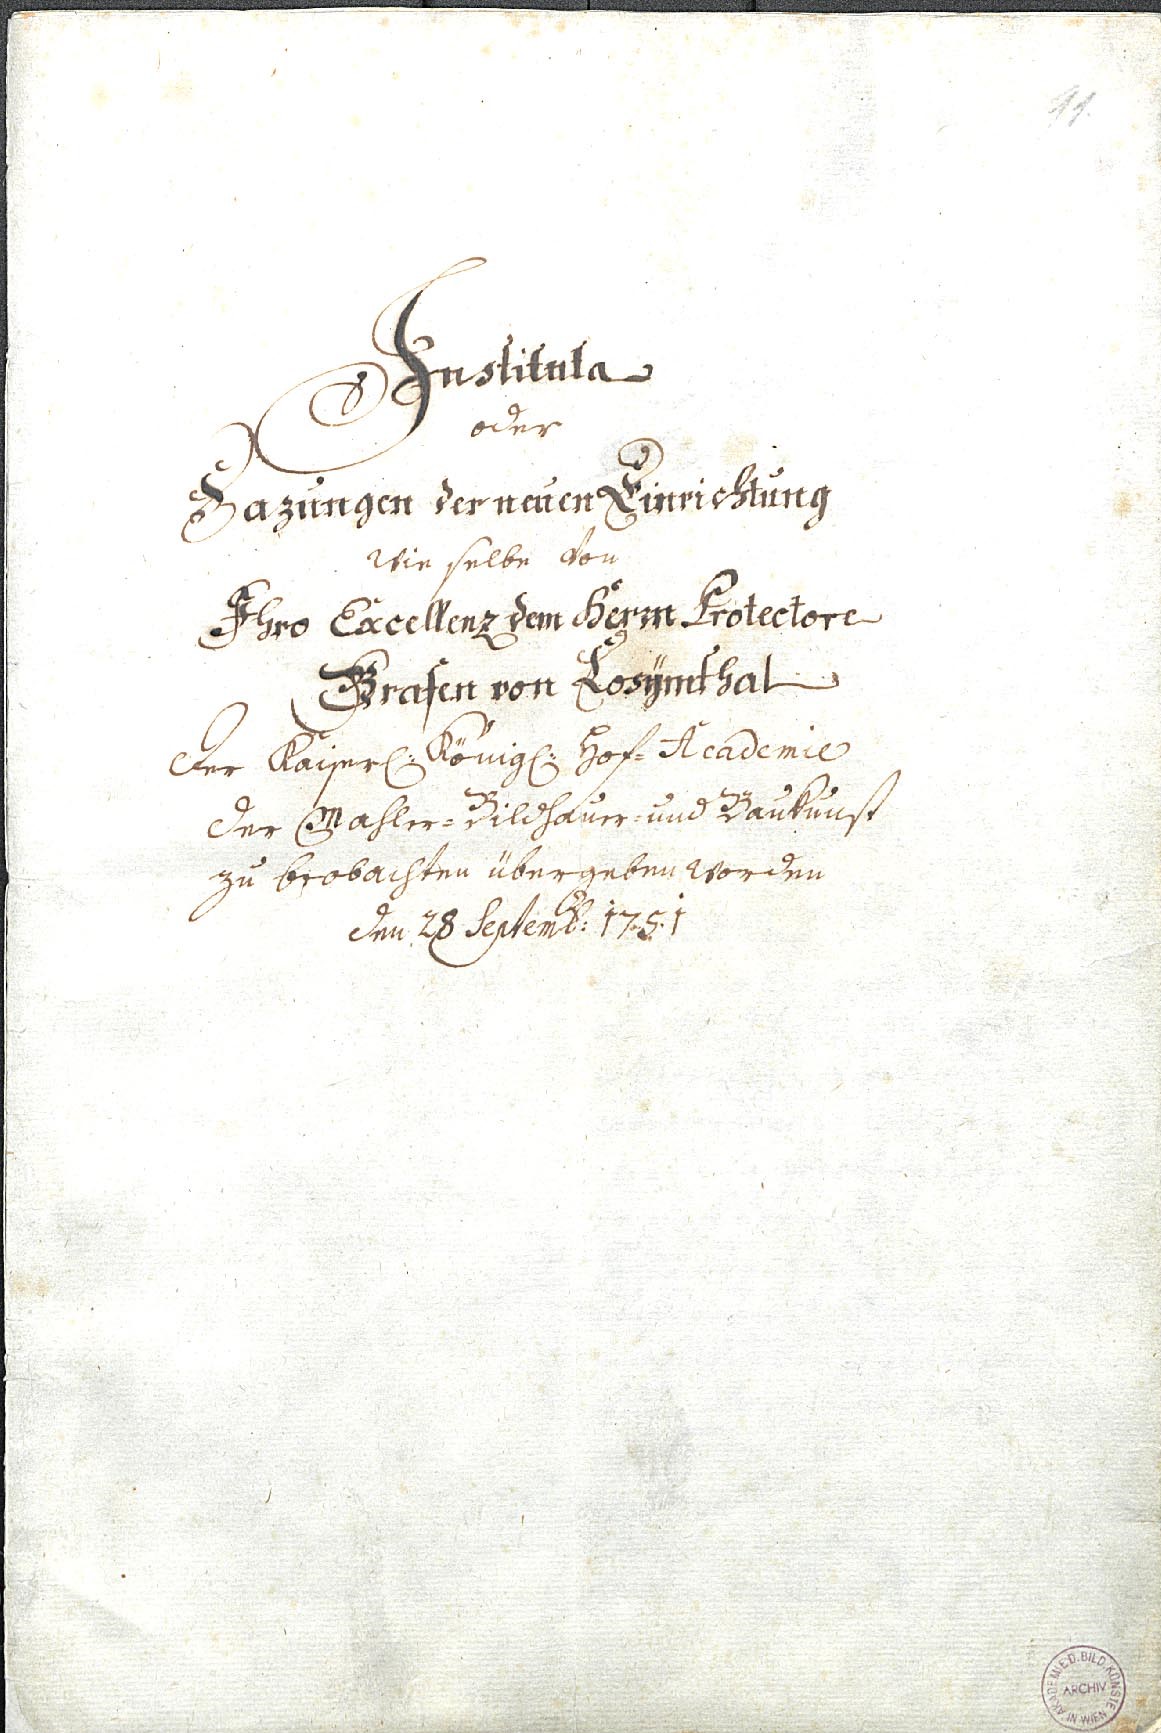 11.
Instituta
oder
Sazungen der neuen Einrichtung
wie selbe von
Ihro Excellenz dem Herrn Protectore
Grafen von Losÿmthal
der Kaiserl: Königl: Hof= Academie
der Mahler= Bildhauer= und Baukunst
zu beobachten übergeben worden
den 28 Septemb: 1751
AKADEMIE D. BILD. KÜNSTE
ARCHIV
IN WIEN